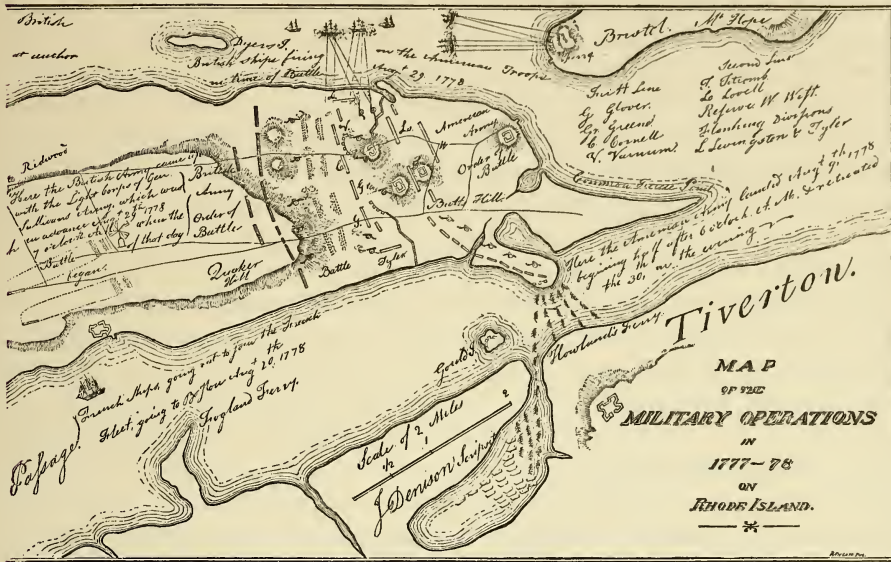 British
at anchor
Dyers I.
British ships firing on the American Troops
in time of Battle Augt 29. 1778
Bristol.
Mt Hope
First Line
G Glover.
Gr Greens
C Cornell
V. Varnum.
Second Line
T. Titcomb
Lo Lovell
Reserve W West.
Flanking Divisions
L Livingston & Tyler
Redwood
Here the British Army came up
with the Light Corps of Gen
Sullivans Army, which was
in advance Augt 29th 1778
7 o'clock A.M. when the
Battle of that day
began.
British
Army
Order of
Battle
American
Army
Order
Battle
Lo
W
G
Quaker
Hill
Battle
Tyler
Butts Hill
Common Fence Point
Here the American Army landed Augt 9th 1778
beginning after 6 o'clock A. M. & retreated
the 30th in the evening
Howland's Ferry.
Tiverton.
Gould I.
French Ships, going out to join the French
Fleet, going to Boston Augt 20th, 1778
Fogland Ferry.
Passage.
Scale of 2 Miles
1/2
1
2
J Denison Scripsit
MAP
OF THE
MILITARY OPERATIONS
IN
1777-78
ON
RHODE ISLAND.